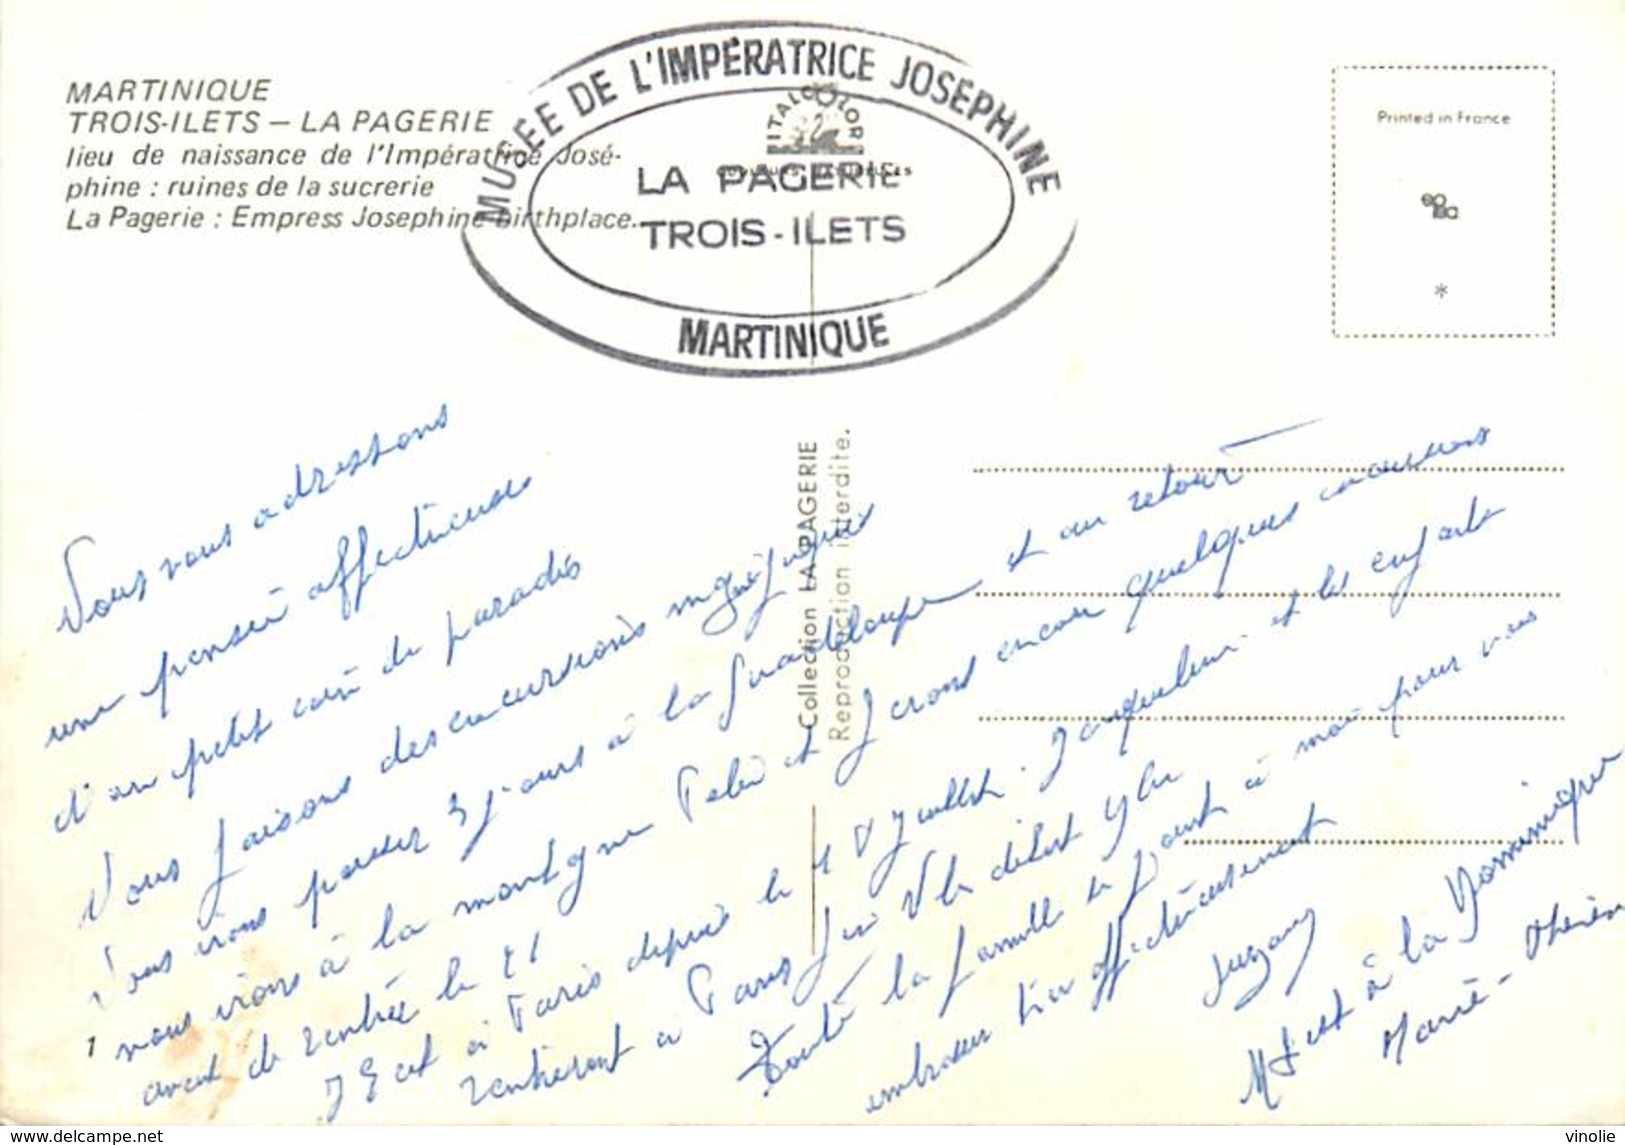 MARTINIQUE
TROIS-ILETS — LA PAGERIE
lieu de naissance de l'Impératrice José-
phine : ruines de la sucrerie
La Pagerie : Empress Josephine birthplace.
MUSÉE DE L'IMPÉRATRICE JOSEPHINE
LA PAGERIE
TROIS-ILETS
MARTINIQUE
ITALCOLOR
Printed in France
*
Collection LA PAGERIE
Reproduction interdite.
Nous vous adressons
une pensée affectueuse
d'un petit coin de paradis
Nous faisons des excursions magnifiques
Nous irons passer 3 jours à la Guadeloupe et au retour
nous irons à la montagne Pelée et ferons encore quelques excursions
avant de rentrée le 21
est à Paris depuis le 10 Juillet. Jacqueline et les enfants
rentreront à Paris fin début
Toute la famille se joint à moi pour vous
embrasser affectueusement
Suzany
est à la Dominique
Marie-
1
www.delcampe.net
vinolie